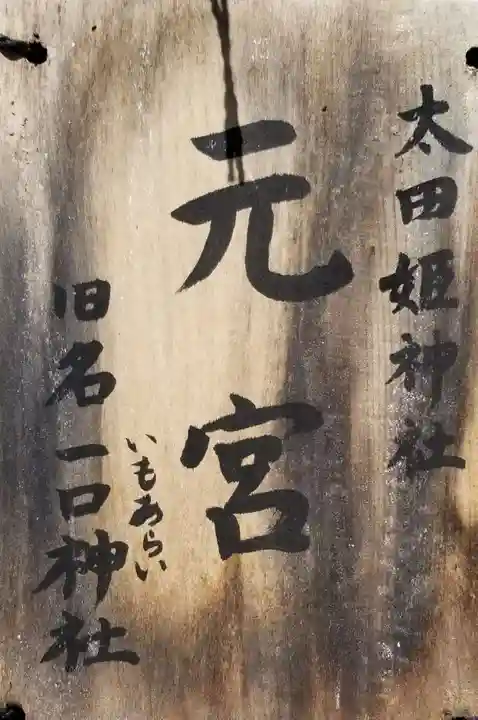 太田姫神社
元宮
いもあらい
旧名一口神社